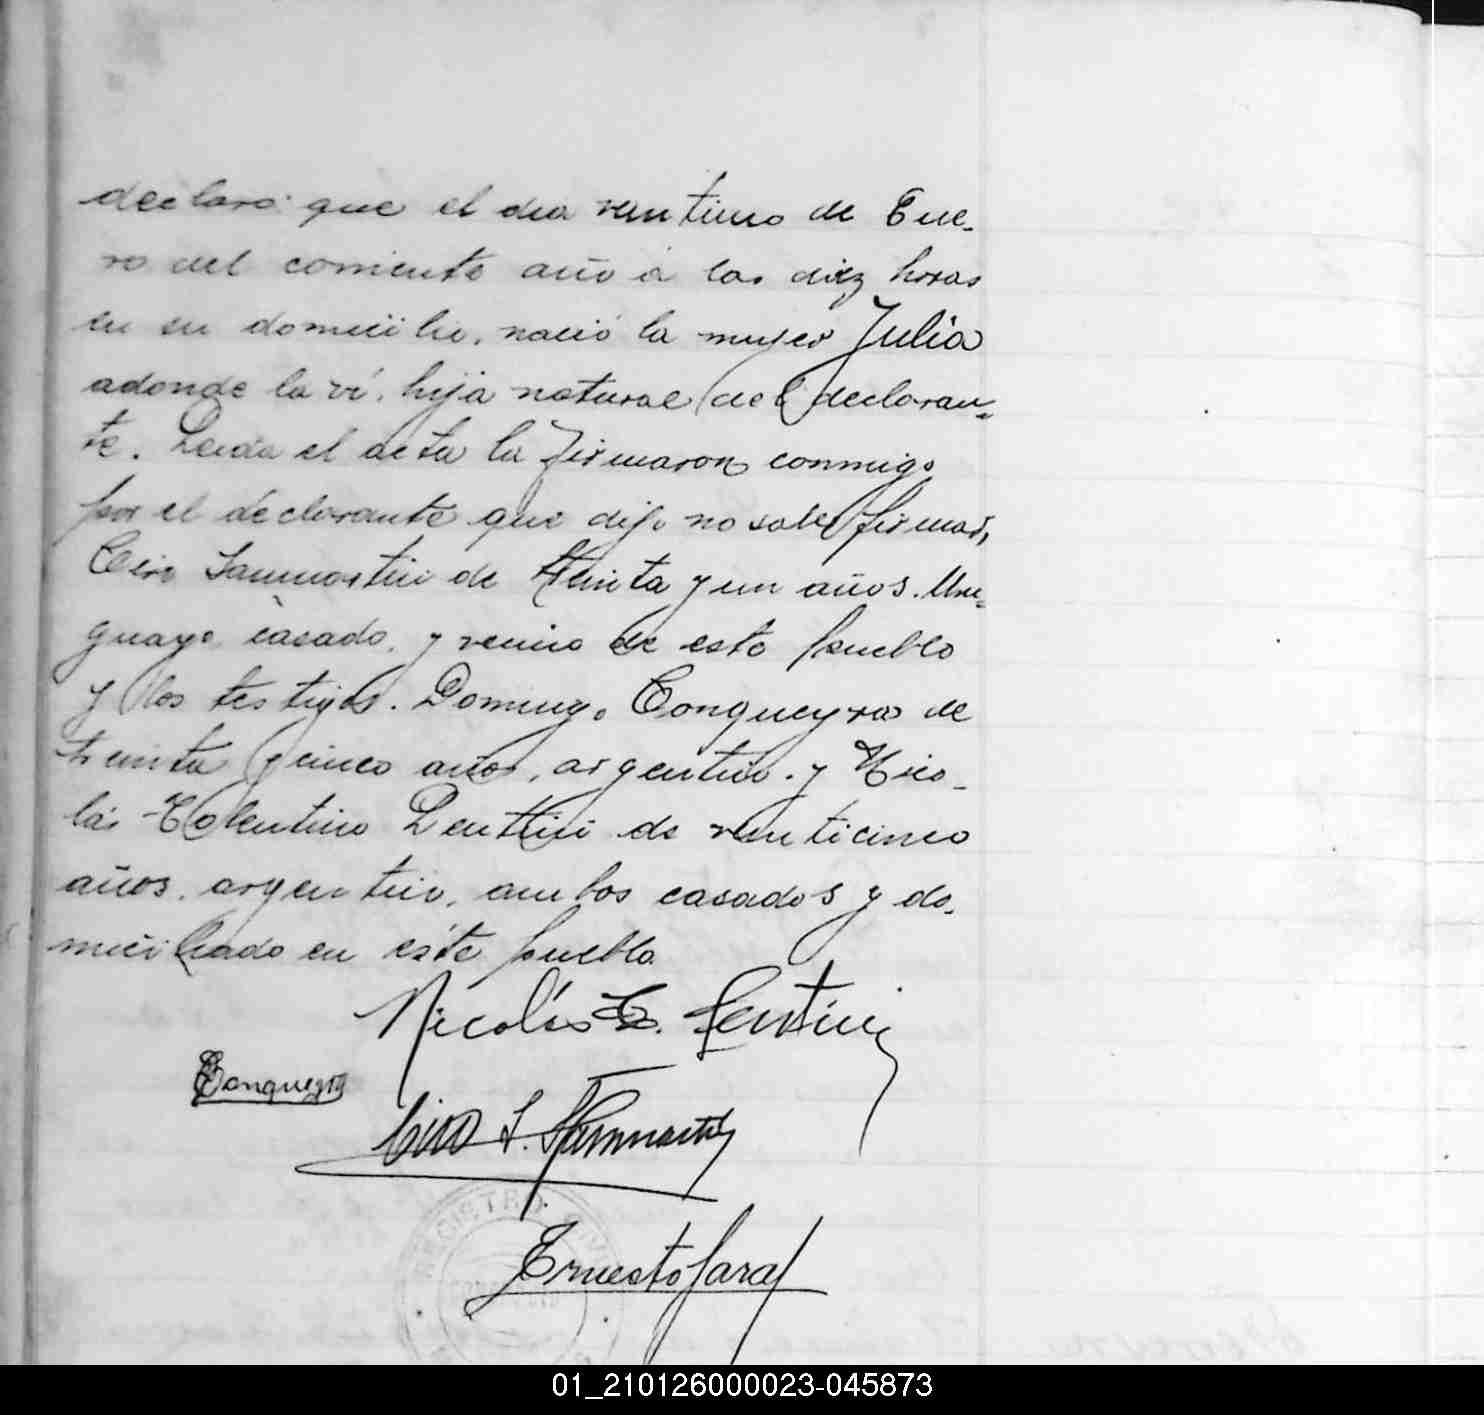 declaró que el dia veintiuno de Ene-
ro del corriente año á las diez horas
en su domicilio, nació la mujer Julia
adonde la ví, hija natural del declaran-
te. Leida el acta la firmaron conmigo
por el declarante que dijo no saber firmar,
Ciro Sanmartin de treinta y un años. Uru-
guayo, casado, y vecino de este pueblo
y los testigos. Domingo Conqueyra de
treinta y cinco años, argentino. y Nico-
lás Tolentino Lentini de veinticinco
años, argentino, ambos casados y do-
miciliado en este pueblo
Nicolás T. Lentini
Conqueyra
Ciro S. Sanmartin
Ernesto Jara
REGISTRO CIVIL
01_210126000023-045873